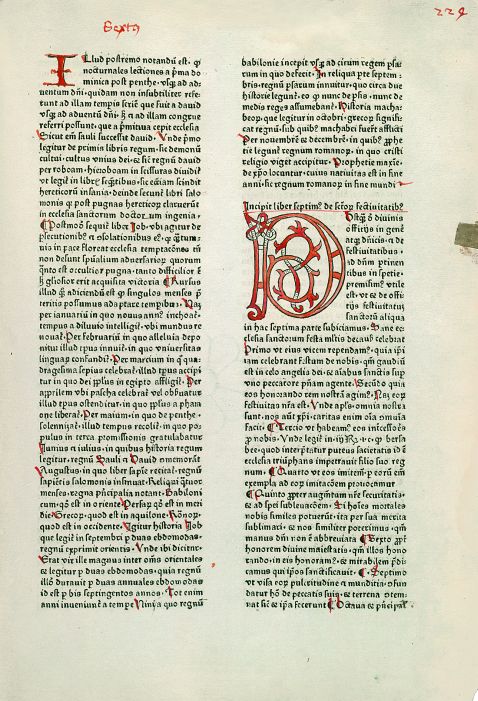 Sexta
229
Illud postremo notandū est. qͥ
nocturnales lectiones a p̄ma do
minica post penthe. vsqꝫ ad ad-
uentum dn̄i. quidam non insubiliter refe-
runt ad illam tempis serie͂ que fuit a dauid
vsqꝫ ad aduentū dn̄i. ꝫ ad illam congrue
referri possunt. que a p̄mitiua cepit ecclesia
Sicut em̄ sauli successit dauid. Vnde p̄mo
legitur de primis libris regum. sic demonū
cultui. cultus vnius dei. ⁊ sic regnū dauid
per roboam. hieroboam in scissuras diuidit
vt legit̄ in libr̄ seq̄ntibus. sic eciam scindit̄
hereticorū insania. deinde secunt̄ libri salo
monis qꝫ post pugnas hereticor̄ claruerūt
in ecclesia sanctorum doctorum ingenia.
Postmodū sequit̄ liber Iob. vbi agitur de
psecutionibꝫ ⁊ ⁊solationibus
runt in pace floreat ecclesia temptacōnes tn̄
non desunt spūalium aduersarior̄ quorum
q̄nto est occultior pugna. tanto difficilior ē
⁊ gl̄iosior erit acquisita victoria Rursus
illud qꝫ adiciendū est qꝫ singulos menses p̄
teritis possumus adaptare tempibus. Nā
per ianuariū in quo nouus annꝰ inchoat̄
tempus a diluuio intelligit̄. vbi mundus re
nouat̄. Per februariū in quo alleluia depo
nitur illud tp̄us innuit̄. in quo vniuersitas
linguar̄ confundit̄. Per marcium in qꝫ qua
dragesima sepius celebrat̄. illud tp̄us accipi
tur in quo dei ppl̄us in egipto affligit̄. Per
aprilem vbi pascha celebrat̄ vel obbatur
illud tp̄us ostenditur. in quo ppl̄us a phara
one liberat̄. Per maium. in quo de penthe.
solennizat̄. illud tempus recolit̄. in quo po
pulus in terca promissionis gratulabatur
Iunius ⁊ iulius. in quibus historia regum
legitur. regnū Pauli ⁊ Dauid ꝯmemorāt
Augustus. in quo liber sapiē. recitat̄. regnū
sapiētis salomonis insinuat. Reliqui quatuor
menses. regna pn̄cipalia notant. Babiloni
cum. qꝺ est in oriente. Persar̄ qꝺ est in meri
die. Grecor̄. quod est in aquilone. Romanor̄.
quod est in occidente. Agitur historia Iob
que legit̄ in septembri p duas ebdomadas.
regnū exprimit orientis. Vnde ibi dicitur.
Erat vir ille magnus inter om̄s orientales
⁊ legitur p duas ebdomadas. quia regnū
illō durauit p duas annuales ebdomodas
id est p bis septingentos annos. Tot enim
anni inueniunt̄ a tempe Nini. a quo regnū
babilonie incepit vsqꝫ ad cirum regem psa-
rum in quo defecit. In reliqua pte septem-
bris. regnū psarum innuitur. quo circa due
historie legunt̄. eo qꝫ nunc de psis. nunc de
medis reges assumebant̄. Historia macha-
beor̄. que legitur in octobri. grecor̄ signifi-
cat regnū. sub quibꝰ machabei fuerūt afflicti
Per nouembrē ⁊ decembrē. in quibꝰ. ꝓphe
tie legunt̄ regnum romanor̄. in quo cristi
religio viget accipitur. Prophetie maxīe.
de xp̄o locuntur. cuius natiuitas est in fine
anni. sic regnum romanor̄ in fine mundi
Incipit liber septimꝰ. de scōꝝ festiuitatibꝰ
Postqꝫ d̄ diuinis
officijs in gene
re atqꝫ dn̄icis. ⁊ de
festiuitatibus.
ad dn̄m ptinen
tibus in specie.
premisimꝰ. vtile
est. vt ⁊ de offi-
cijs festiuitatū
sanctorū aliqua
in hac septima parte subiciamus. Sane ec-
clesia sanctorum festa ml̄tis decausis celebrat
Primo vt eius vicem rependam9. quia ipi
iam celebrant festum de nobis. qm̄ gaudiū
est in celo angelis dei. ⁊ aīabus sanctis sup
vno peccatore pn̄iam agente. Secūdo quia
eos honorando rem nostrā agim9. Nā eor̄
festiuitas nr̄a est. Vnde apl̄s. omnia nostra
sunt. nos aūt xp̄i. caritas enim om̄ia ꝯmu
nicat Tercio vt habeam9 eos int̄cessores
ꝓ nobis. Vnde legit̄ in .iij. Rꝫ .i. c. qꝫ bersa
bee. quod interp̄tatur puteus sacietatis id ē
ecclesia triūphans impetrauit filio suo reg
num. Quarto vt eos imitem̄. p eorū em̄
exempla ad eor̄ imitacōem ꝓuocamur
Quinto ꝓpter augmt̄um nr̄e securitatis.
⁊ ad spei subleuacōem. Si hōies mortales
nobis similes potuerūt. ita per sua merita
sublimari. ⁊ nos similiter poterimus. qm̄
manus dn̄i non ē abbreuiata Sexto ꝓpt̄
honorem diuine maiestatis. qm̄ illos hono
rando. in eis honoram9. ⁊ mirabilem p̄di-
camus qui ipsos sanctificauit. Septimo
vt visa eor̄ pulcritudine ⁊ mundicia. ꝯfun
datur hō de peccatis suis. ⁊ terrena ꝯtem-
nat sic ⁊ ip̄i fecerunt Octaua ⁊ pn̄cipaꝉ